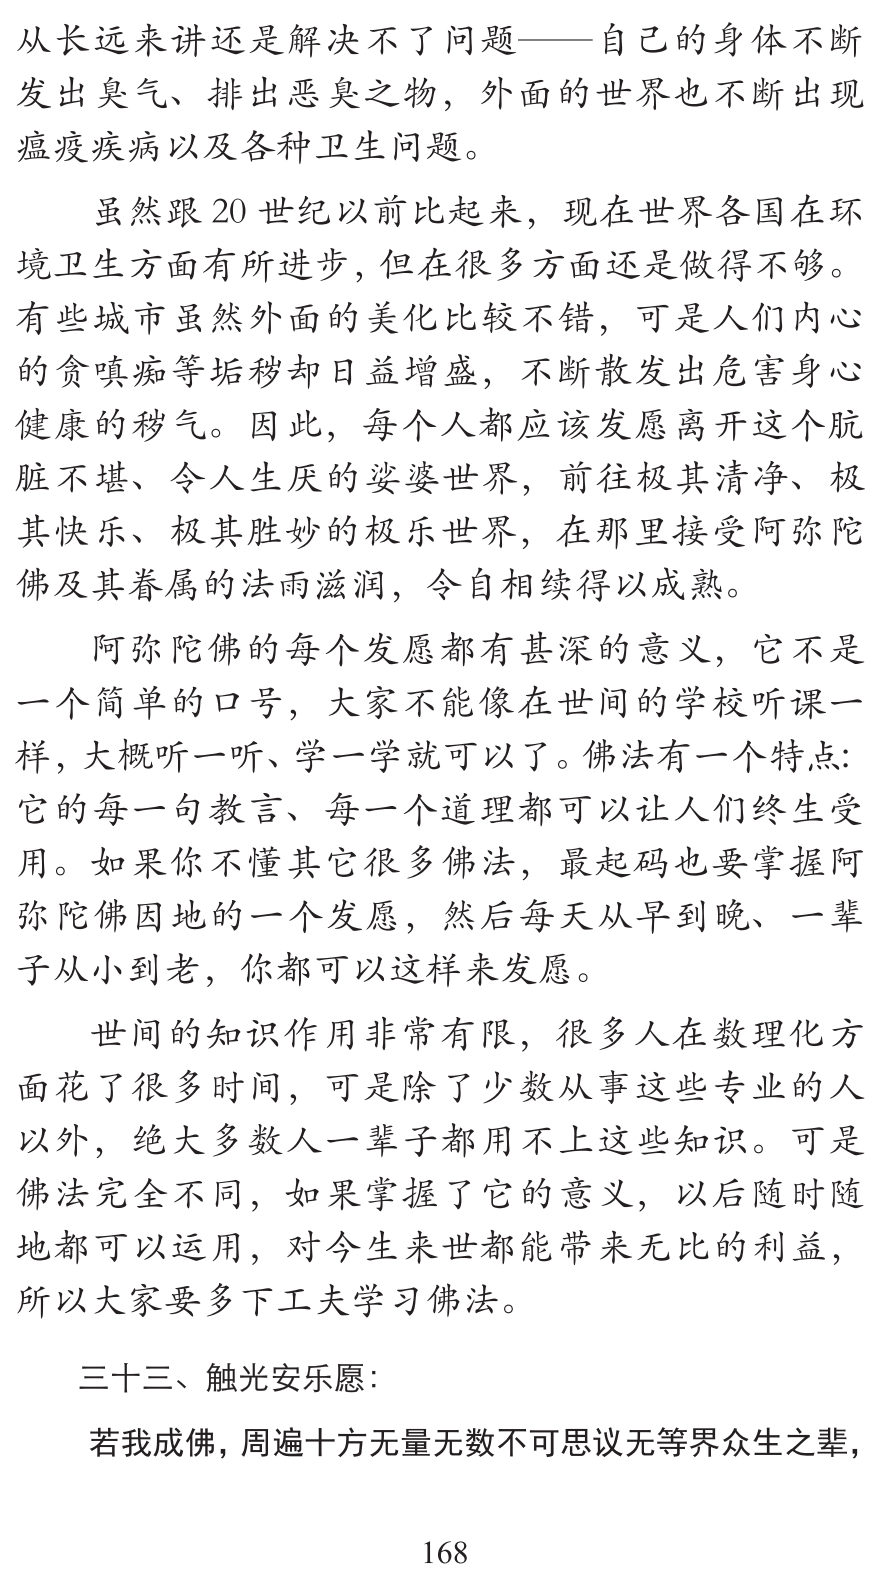 从长远来讲还是解决不了问题——自己的身体不断
发出臭气、排出恶臭之物，外面的世界也不断出现
瘟疫疾病以及各种卫生问题。
虽然跟 20 世纪以前比起来，现在世界各国在环
境卫生方面有所进步，但在很多方面还是做得不够。
有些城市虽然外面的美化比较不错，可是人们内心
的贪嗔痴等垢秽却日益增盛，不断散发出危害身心
健康的秽气。因此，每个人都应该发愿离开这个肮
脏不堪、令人生厌的娑婆世界，前往极其清净、极
其快乐、极其胜妙的极乐世界，在那里接受阿弥陀
佛及其眷属的法雨滋润，令自相续得以成熟。
阿弥陀佛的每个发愿都有甚深的意义，它不是
一个简单的口号，大家不能像在世间的学校听课一
样，大概听一听、学一学就可以了。佛法有一个特点：
它的每一句教言、每一个道理都可以让人们终生受
用。如果你不懂其它很多佛法，最起码也要掌握阿
弥陀佛因地的一个发愿，然后每天从早到晚、一辈
子从小到老，你都可以这样来发愿。
世间的知识作用非常有限，很多人在数理化方
面花了很多时间，可是除了少数从事这些专业的人
以外，绝大多数人一辈子都用不上这些知识。可是
佛法完全不同，如果掌握了它的意义，以后随时随
地都可以运用，对今生来世都能带来无比的利益，
所以大家要多下工夫学习佛法。
三十三、触光安乐愿：
若我成佛，周遍十方无量无数不可思议无等界众生之辈，
168